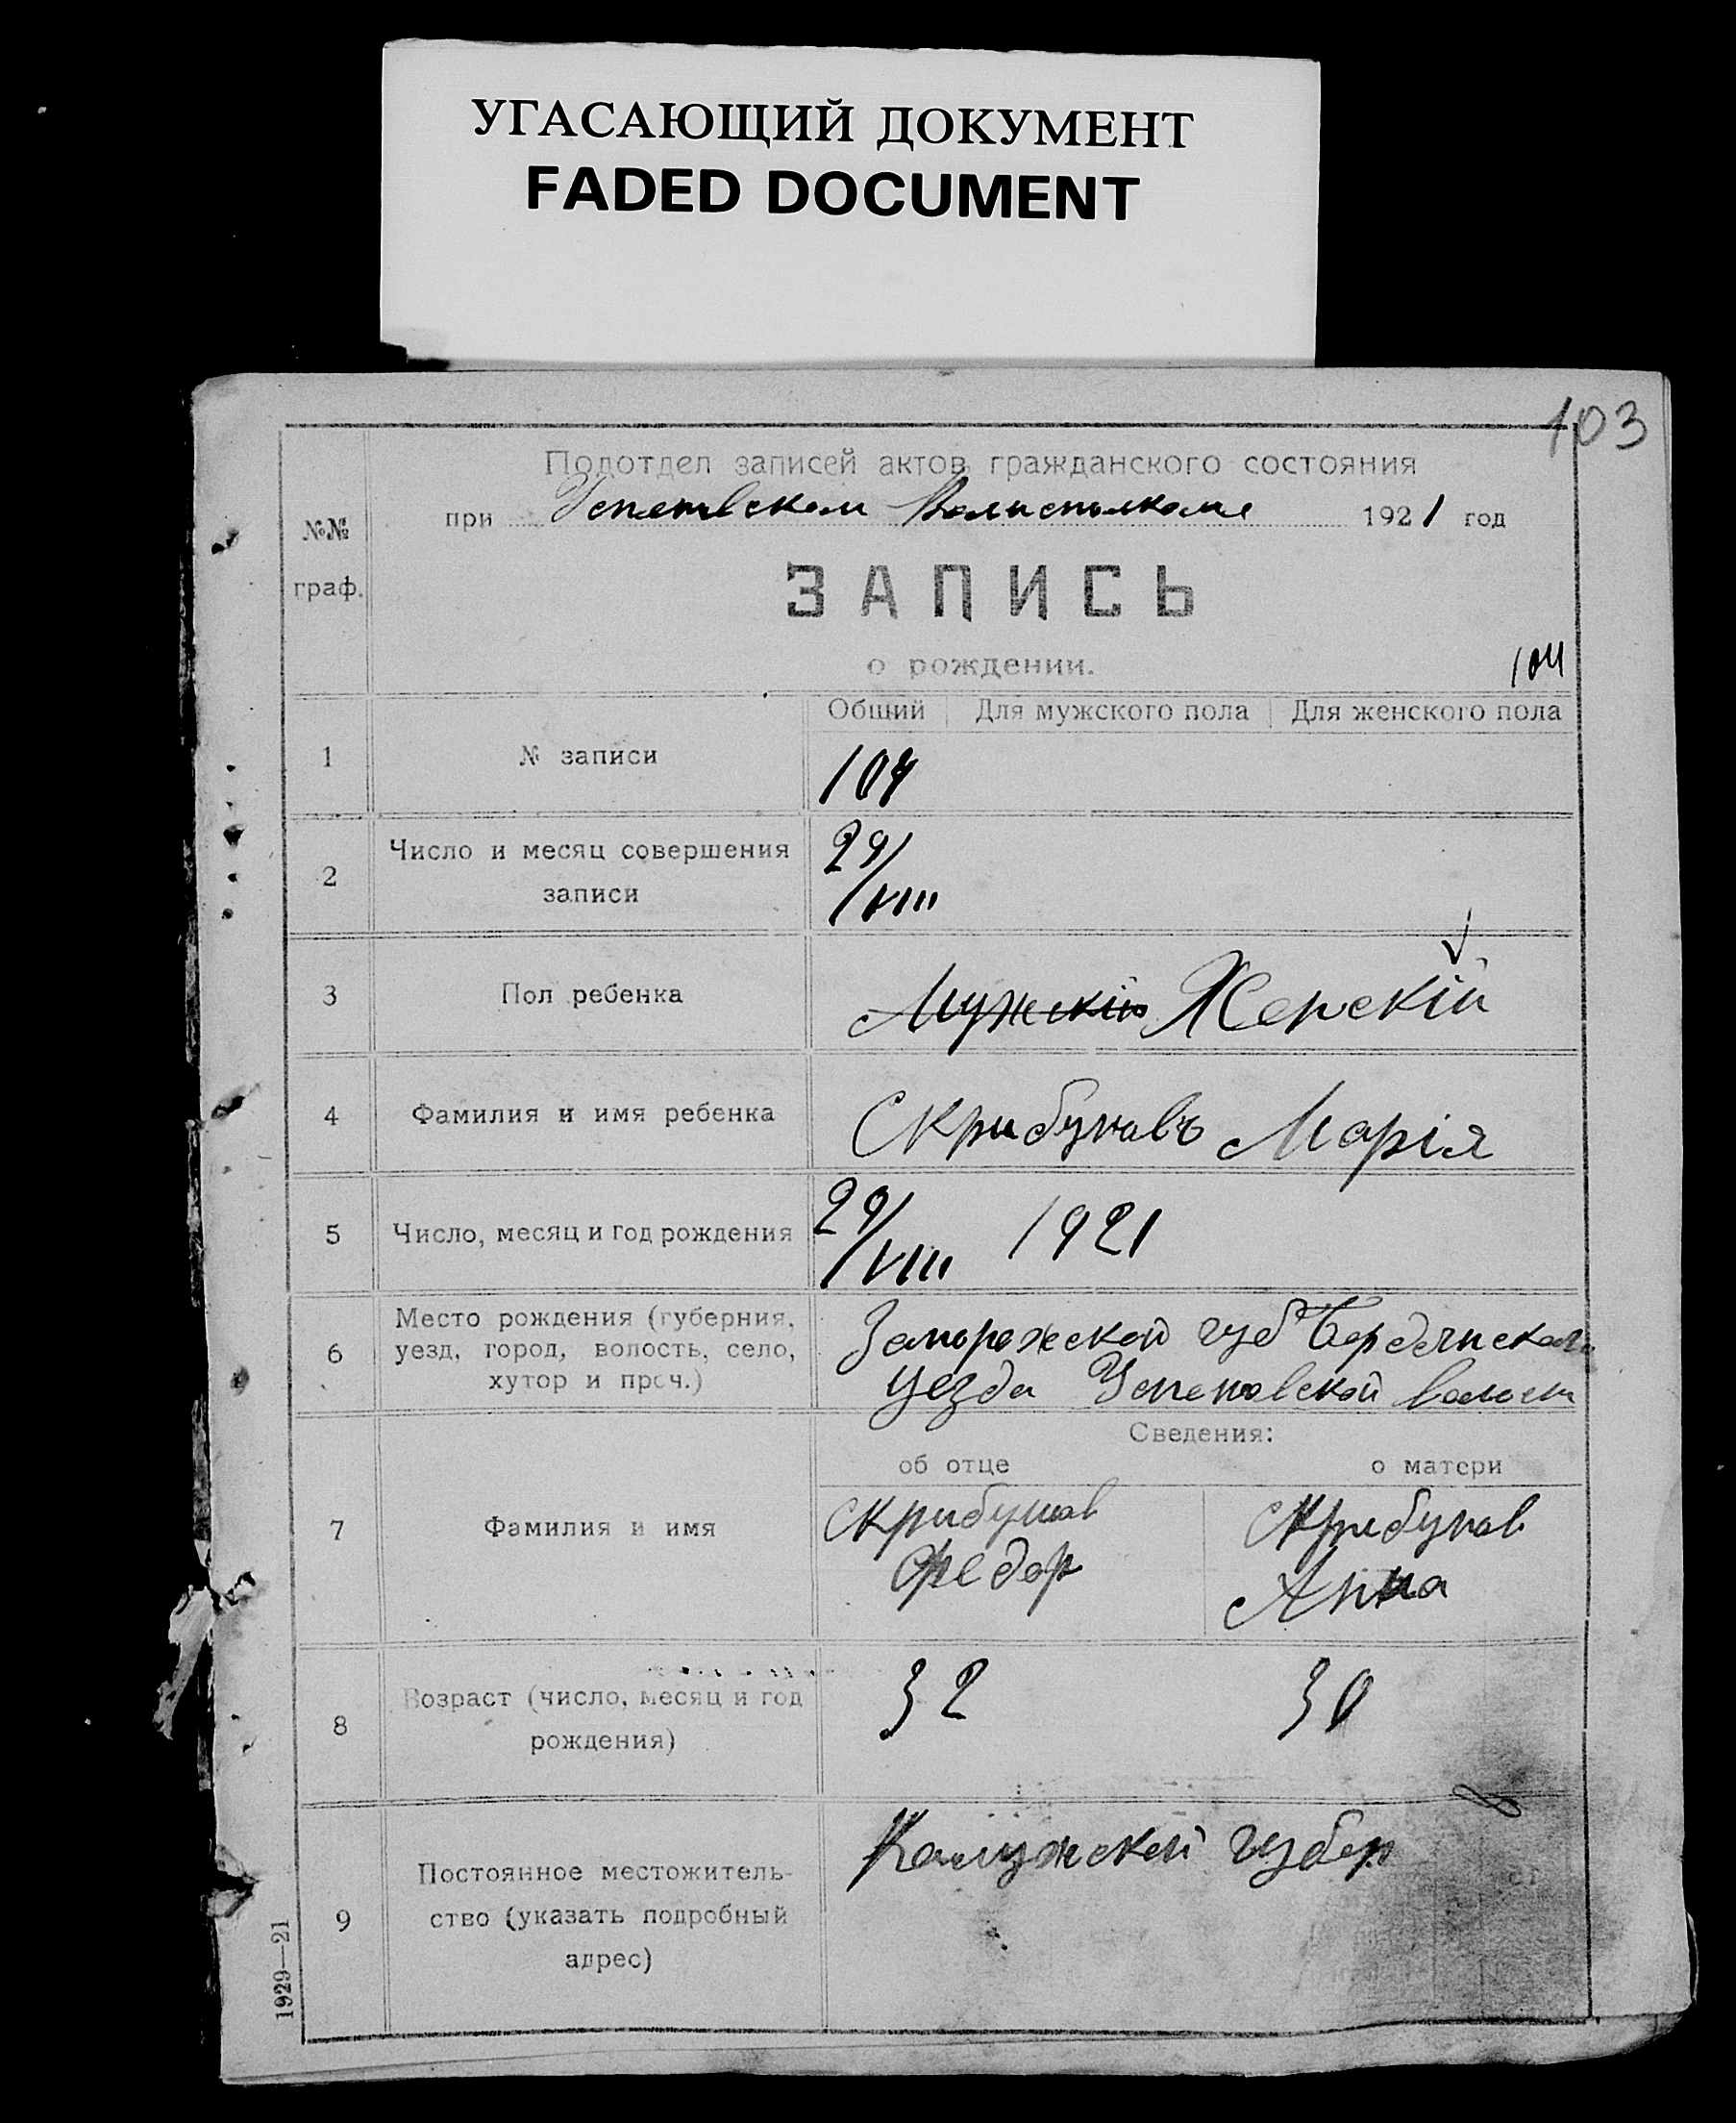 УГАСАЮЩИЙ ДОКУМЕНТ
FADED DOCUMENT
103
Подотдел записей актов гражданского состояния
при Успеновском Волисполкоме 1921 год
№№ граф.
ЗАПИСЬ
о рождении.
104
Общий Для мужского пола Для женского пола
1 № записи 104
2 Число и месяц совершения записи 29/VIII
3 Пол ребенка Мужский Женский
4 Фамилия и имя ребенка Скрибуновъ Марія
5 Число, месяц и год рождения 29/VIII 1921
6 Место рождения (губерния, уезд, город, волость, село, хутор и проч.)
Запорожской губ Бердянскаго
уезда Успеновской волости
Сведения:
об отце о матери
7 Фамилия и имя
Скрибунов Скрибунов
Федор Анна
8 Возраст (число, месяц и год рождения) 32 30
9 Постоянное местожительство (указать подробный адрес)
Калужской губер
1929—21